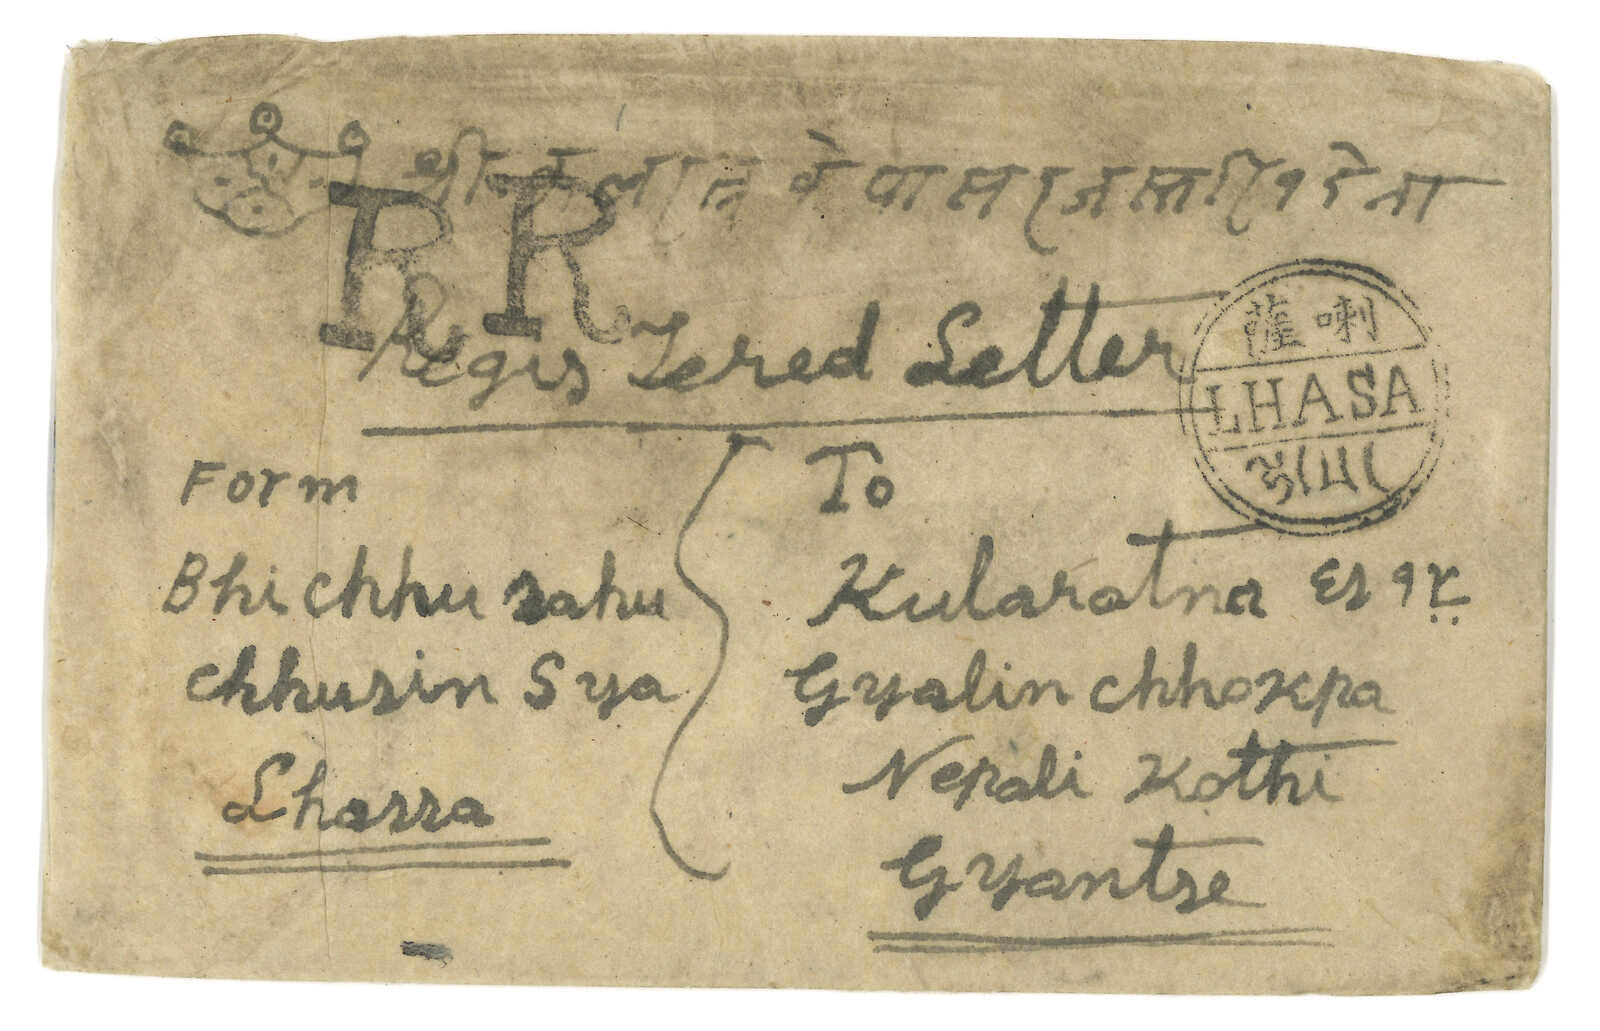 R R
के पास
Registered Letter
薩 喇
LHASA
Form
Bhichhu sahu
chhusin Sya
Lhassa
To
Kularatna
Gyalin chhokpa
Nepali Kothi
Gyantse